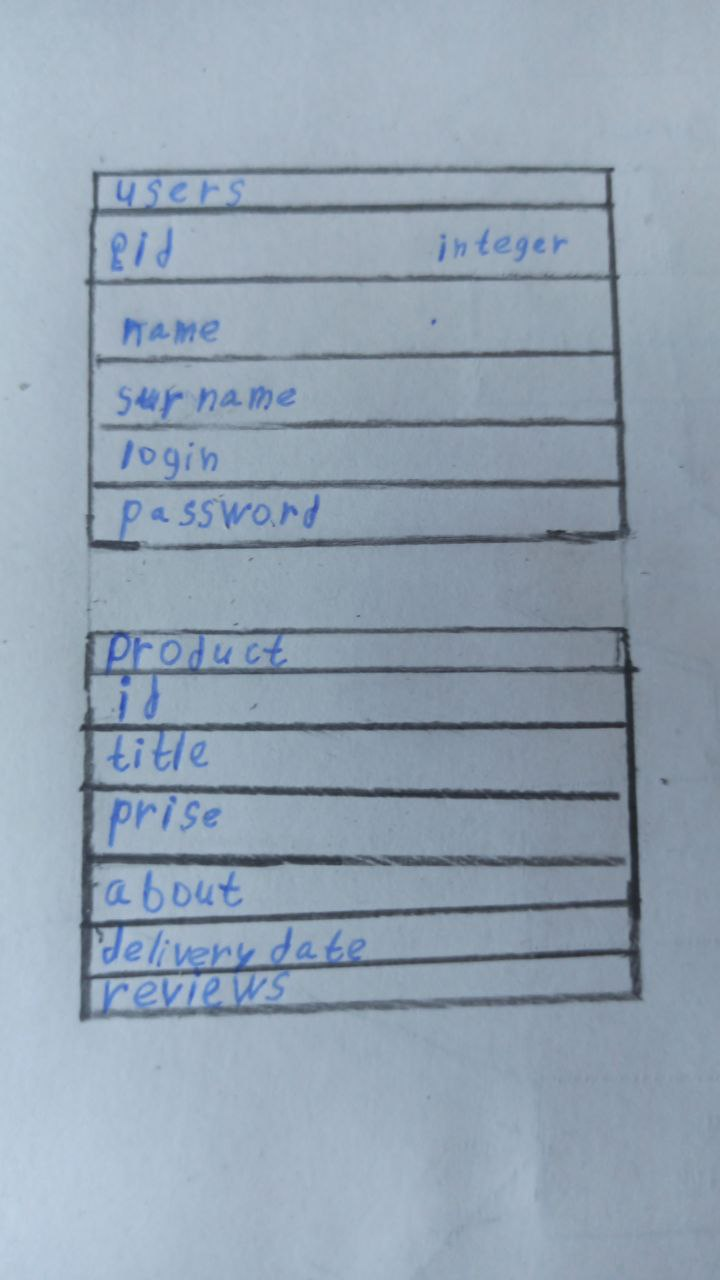 users
id integer
name
surname
login
password
product
id
title
prise
about
delivery date
reviews